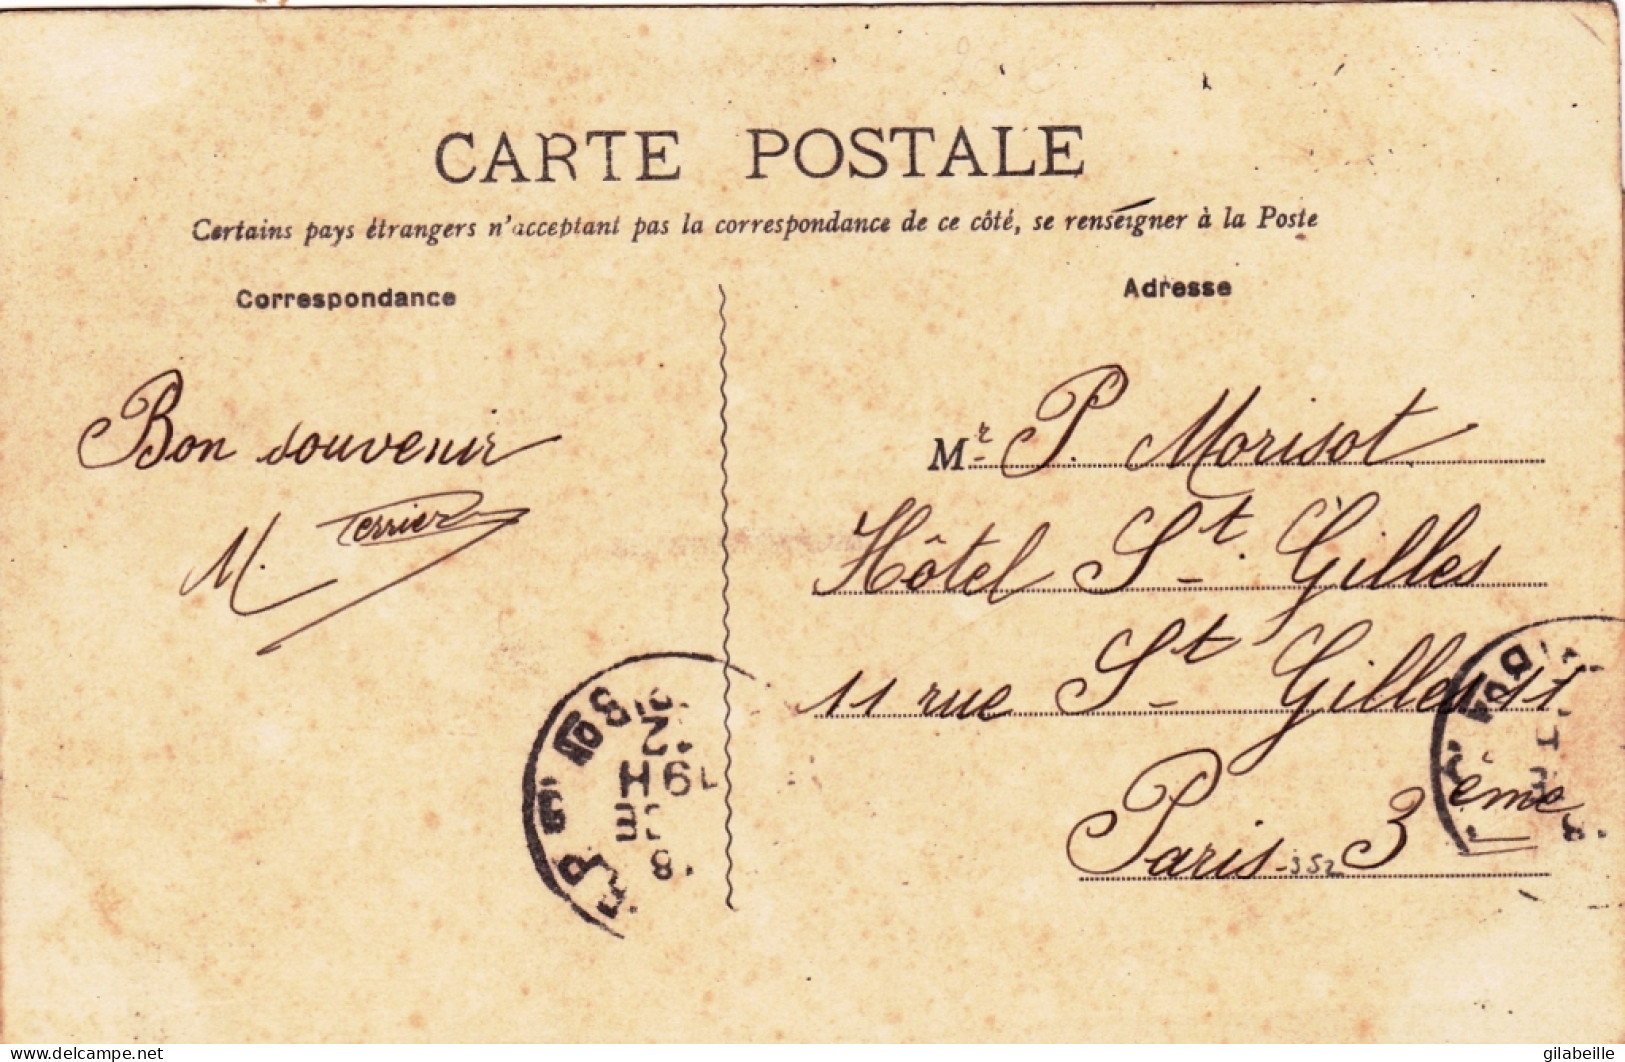 CARTE POSTALE
Certains pays étrangers n'acceptant pas la correspondance de ce côté, se renseigner à la Poste
Correspondance
Adresse
Bon souvenir
M. Terrier
Mr P. Morisot
Hôtel St. Gilles
11 rue St Gilles 11
Paris 3ème
352
19H
delcampe.net
gilabeille